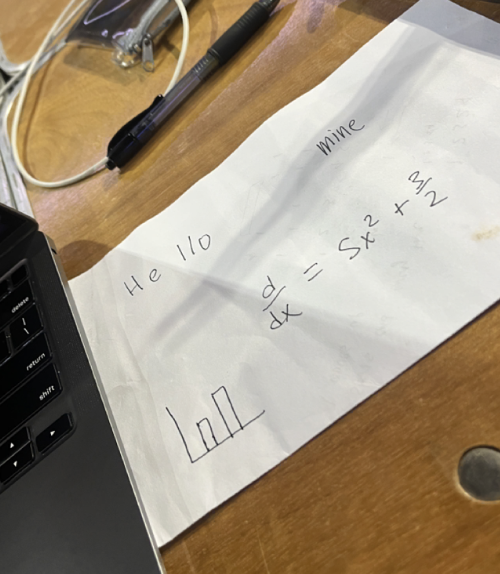 mine
He llo
d/dx = 5x² + 3/2
delete
return
shift